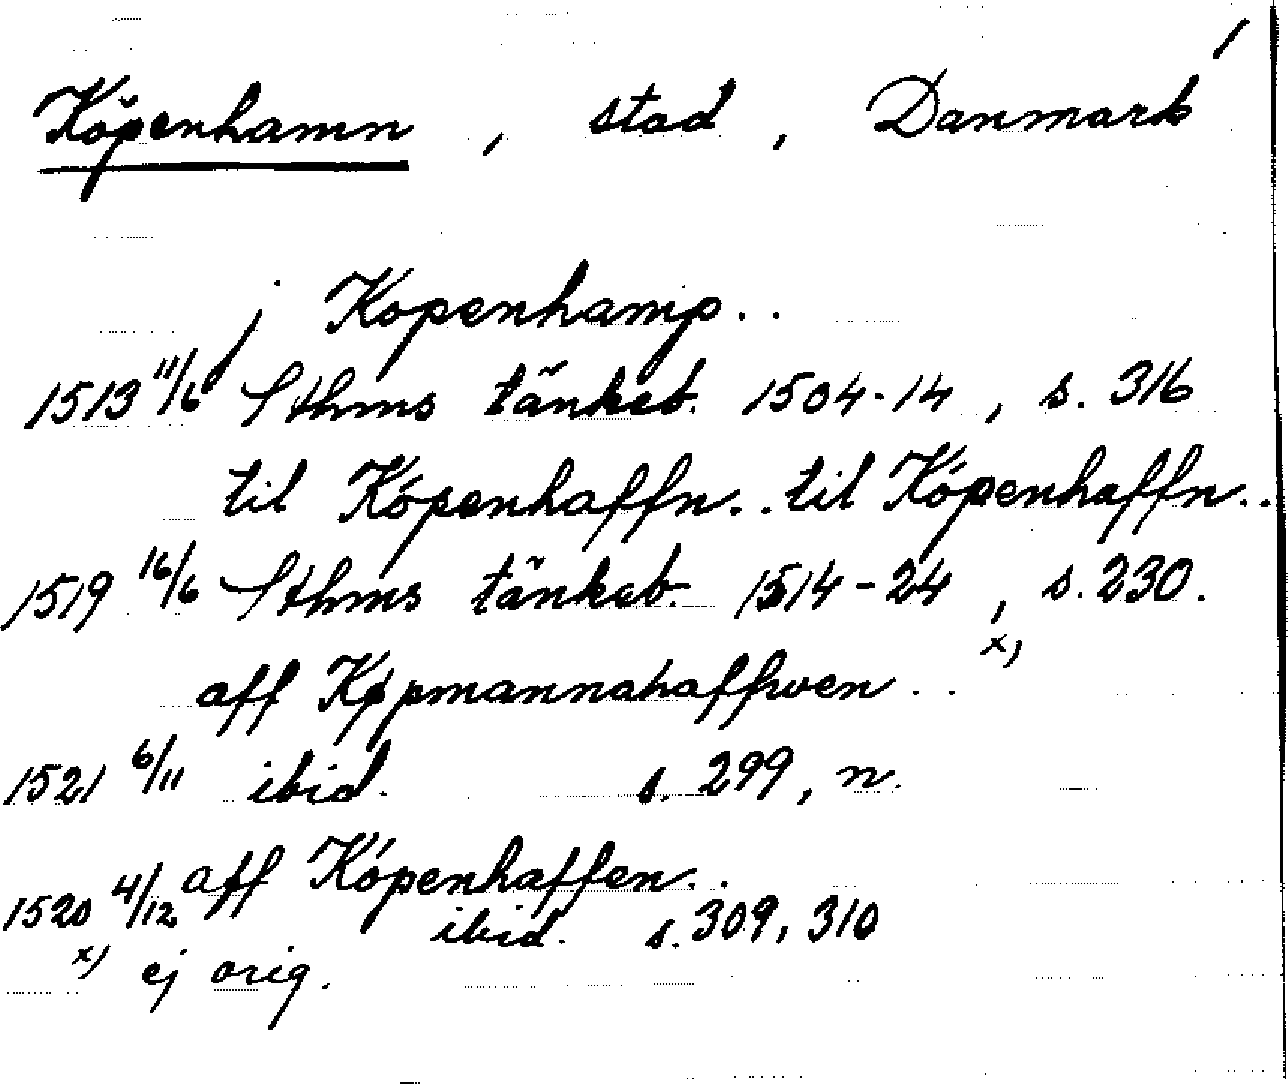 /
Köpenhamn, stad, Danmark
j Kopenhamp..
1513 11/6 Sthms tänkeb. 1504-14, s. 316
til Kópenhaffn.. til Kópenhaffn..
1519 16/6 Sthms tänkeb. 1514-24, s. 230.
aff Køpmannahaffwen .. x)
1521 6/11 ibid. s. 299, n.
aff Kópenhaffen..
1520 4/12 ibid. s. 309, 310
x) ej orig.